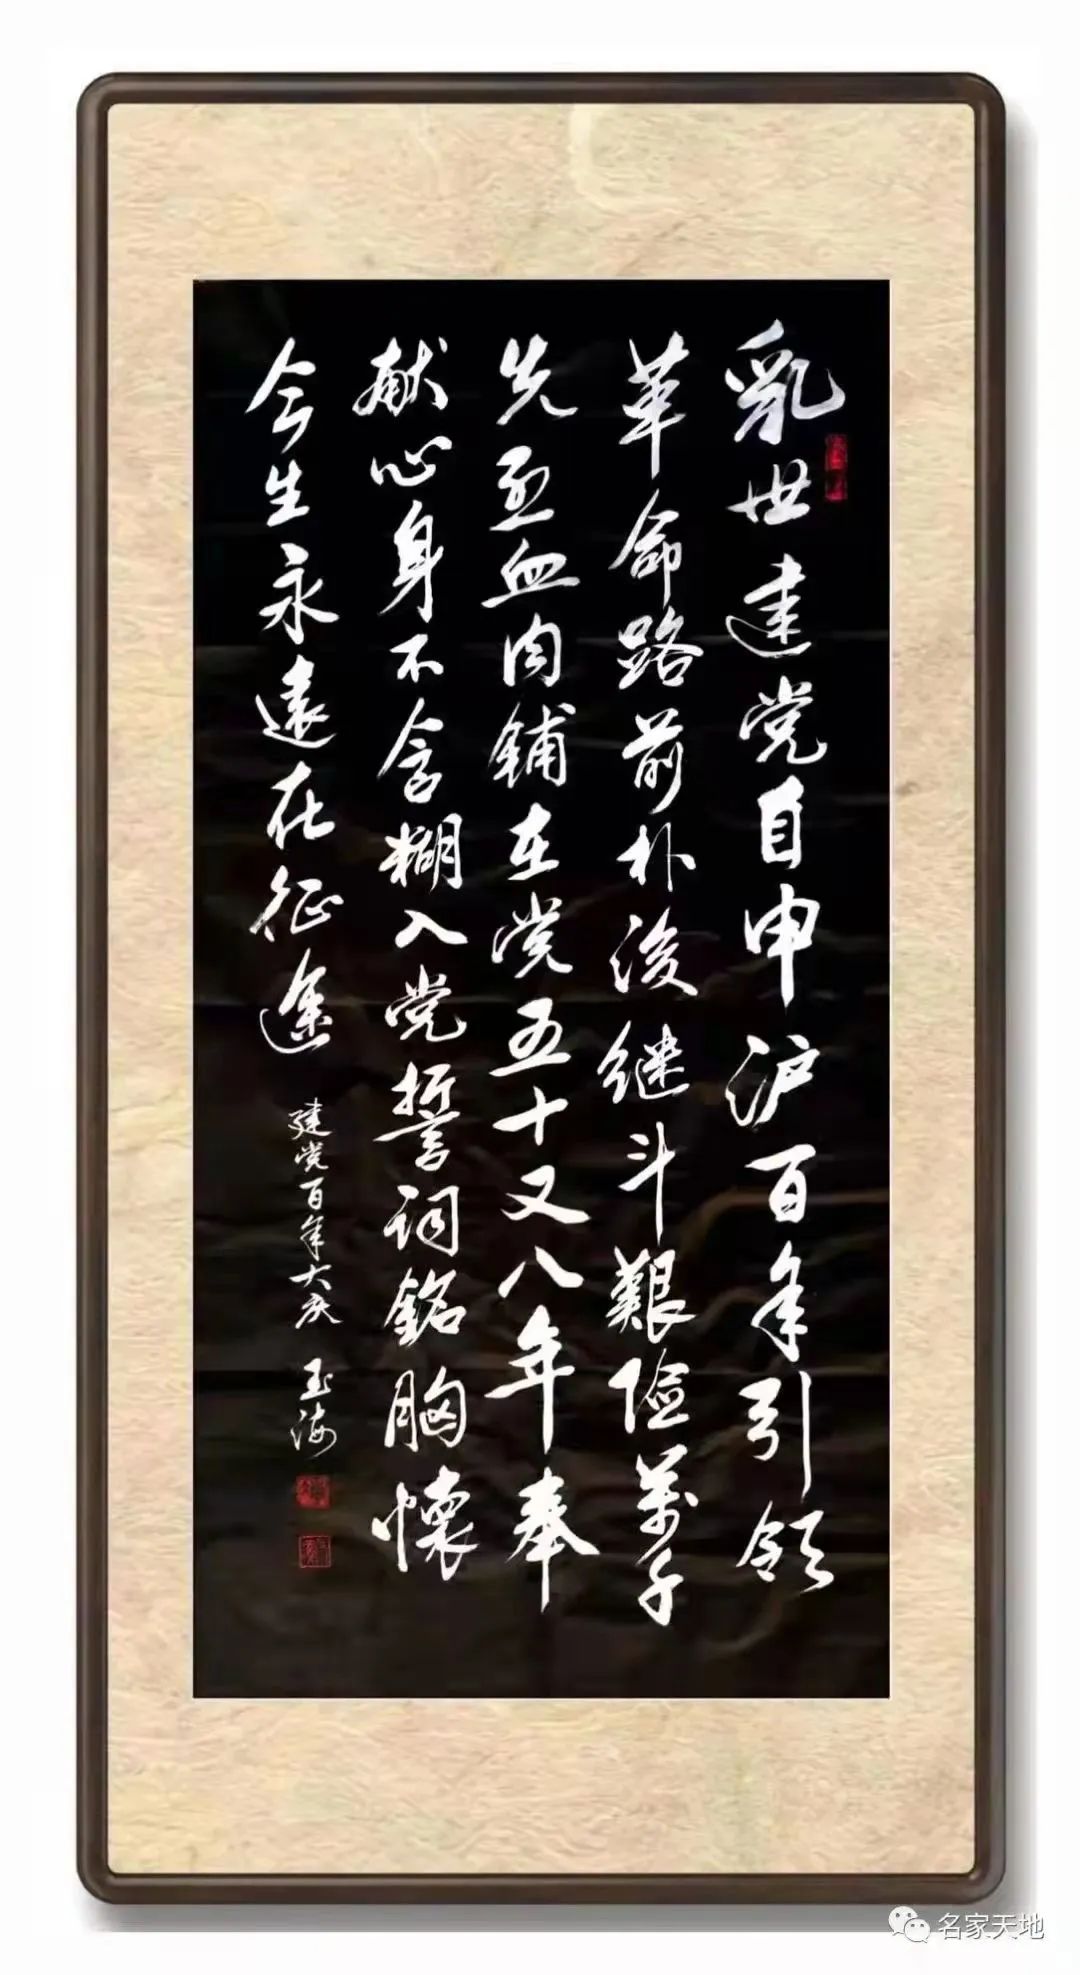 乱世建党自申沪百年引领
革命路前朴後继斗艰险万千
先烈血肉铺在党五十又八年奉
献心身不含糊入党誓词銘胸懐
今生永遠在征途
建党百年大庆 玉海
名家天地